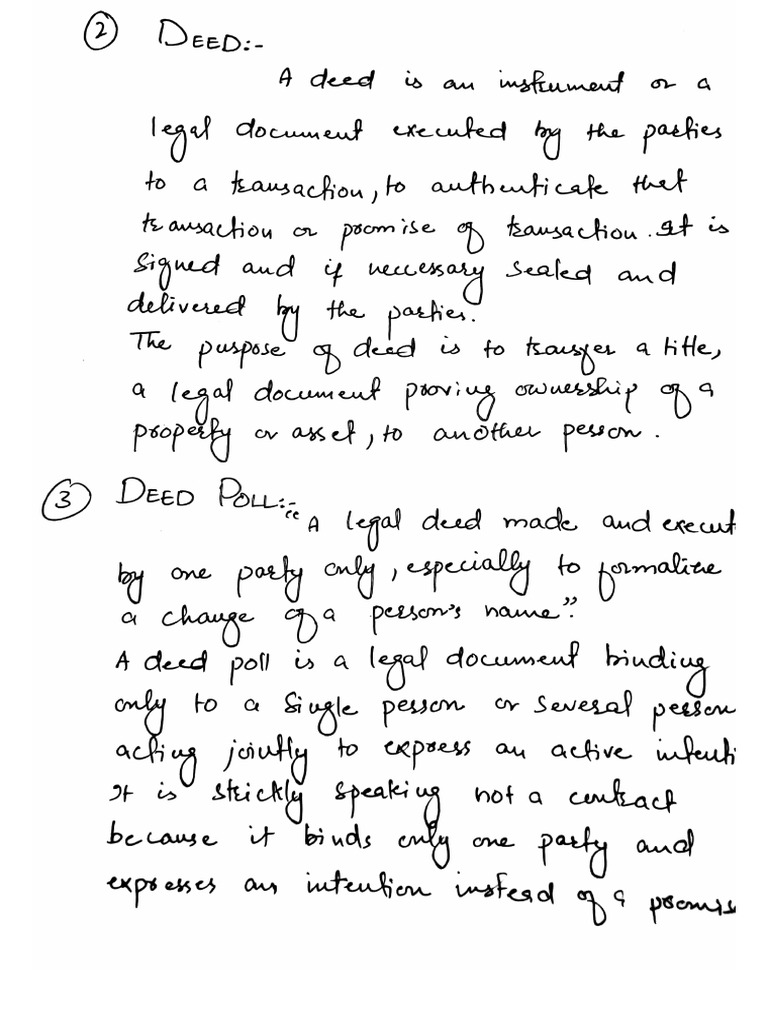 ② DEED:-
A deed is an instrument or a
legal document executed by the parties
to a transaction, to authenticate that
transaction or promise of transaction. It is
Signed and if neccessary sealed and
delivered by the parties.
The purpose of deed is to transfer a title,
a legal document proving ownership of a
property or asset, to another person.
③ DEED POLL:-
“A legal deed made and execut
by one party only, especially to formalize
a change of a person's name”.
A deed poll is a legal document binding
only to a single person or several person
acting jointly to express an active intenti
It is strickly speaking not a contract
because it binds only one party and
expresses an intention instead of a promis